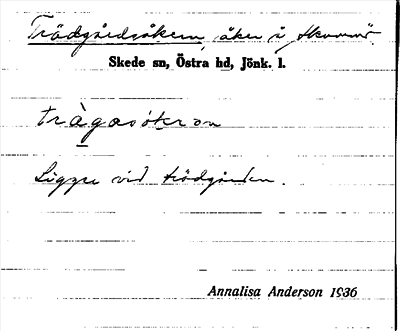 Trädgårdsåkern, åker å
Skede sn, Östra hd, Jönk. l.
Ligger vid trädgården.
Annalisa Anderson 1936